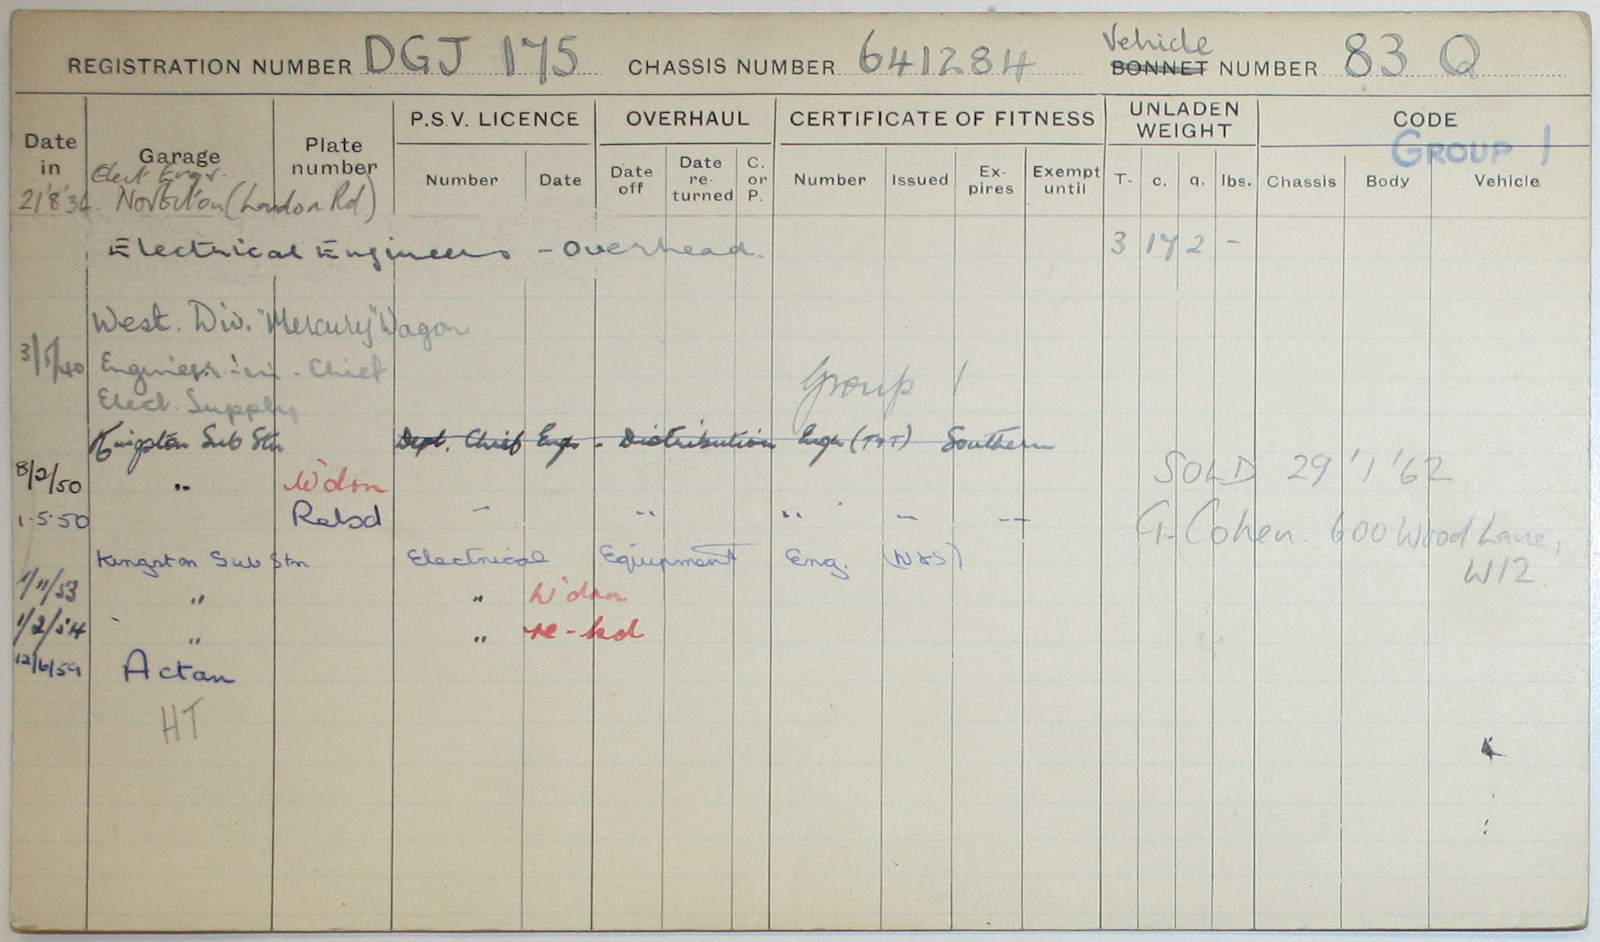 REGISTRATION NUMBER DGJ 175 CHASSIS NUMBER 641284 Vehicle BONNET NUMBER 83 Q
Date in Garage Plate number P.S.V. LICENCE OVERHAUL CERTIFICATE OF FITNESS UNLADEN WEIGHT CODE
GROUP 1
Number Date Date off Date re-turned C. or P. Number Issued Ex-pires Exempt until T. c. q. lbs. Chassis Body Vehicle
Elect Engr.
21'8'34. Norbiton (London Rd)
Electrical Engineers - Overhead. 3 17 2 -
West. Div. "Mercury" Wagon
3/5/40 Engineer-in-Chief
Group 1
Elect. Supply
Kingston Sub Stn Dept. Chief Engr - Distribution Engr (T&T) Southern
SOLD 29'1'62
8/2/50 " W'drn
1.5.50 Relsd - " " - --
G. Cohen. 600 Wood Lane,
W12.
Kingston Sub Stn Electrical Equipment Eng. (N&S)
1/11/53 " " W'drn
1/2/54 " " re-lsd
12/6/59 Acton
HT